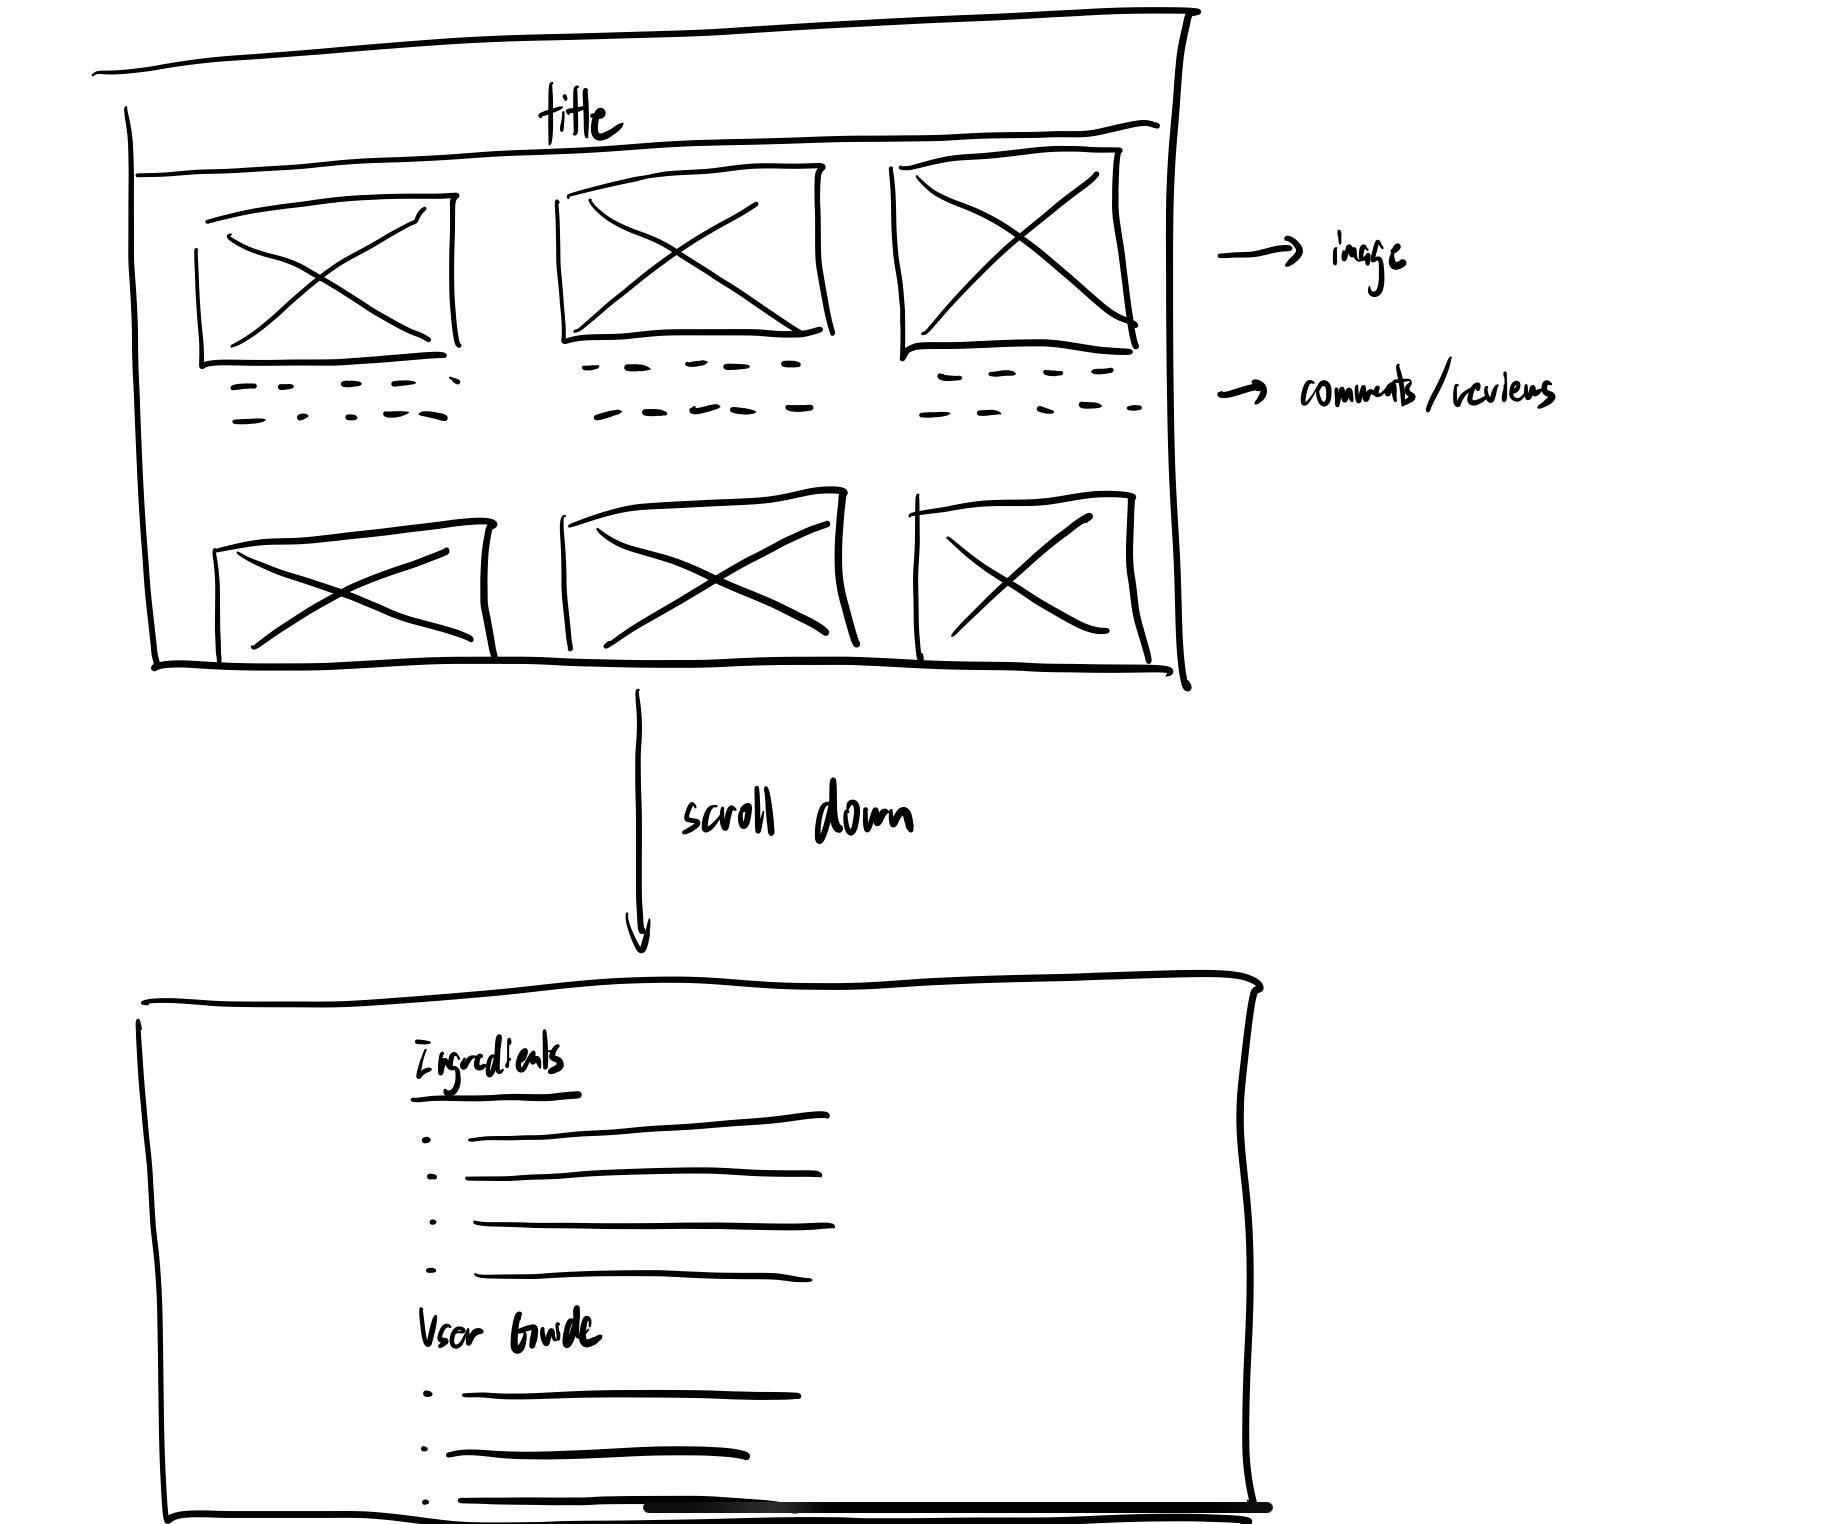 title
image
comments/reviews
scroll down
Ingredients
User Guide